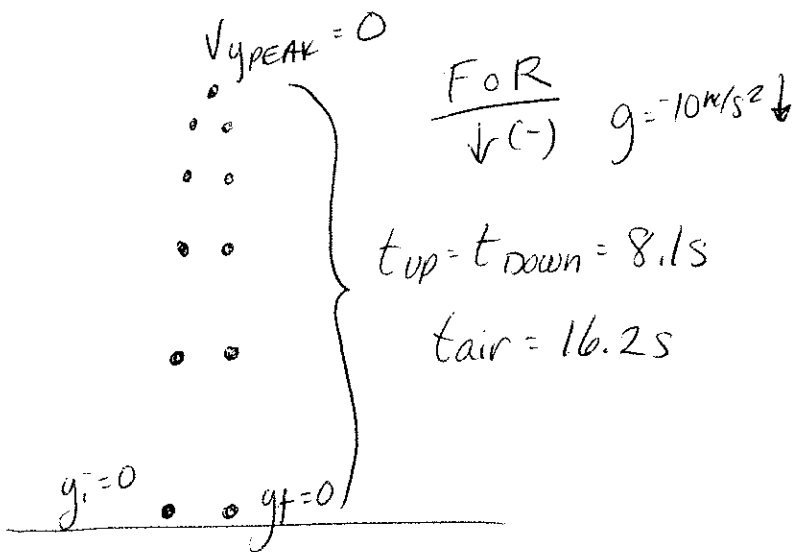 Vy PEAK = 0
FoR
↓(-) g = -10 m/s² ↓
t up = t Down = 8.1s
tair = 16.2s
yi = 0
yf = 0